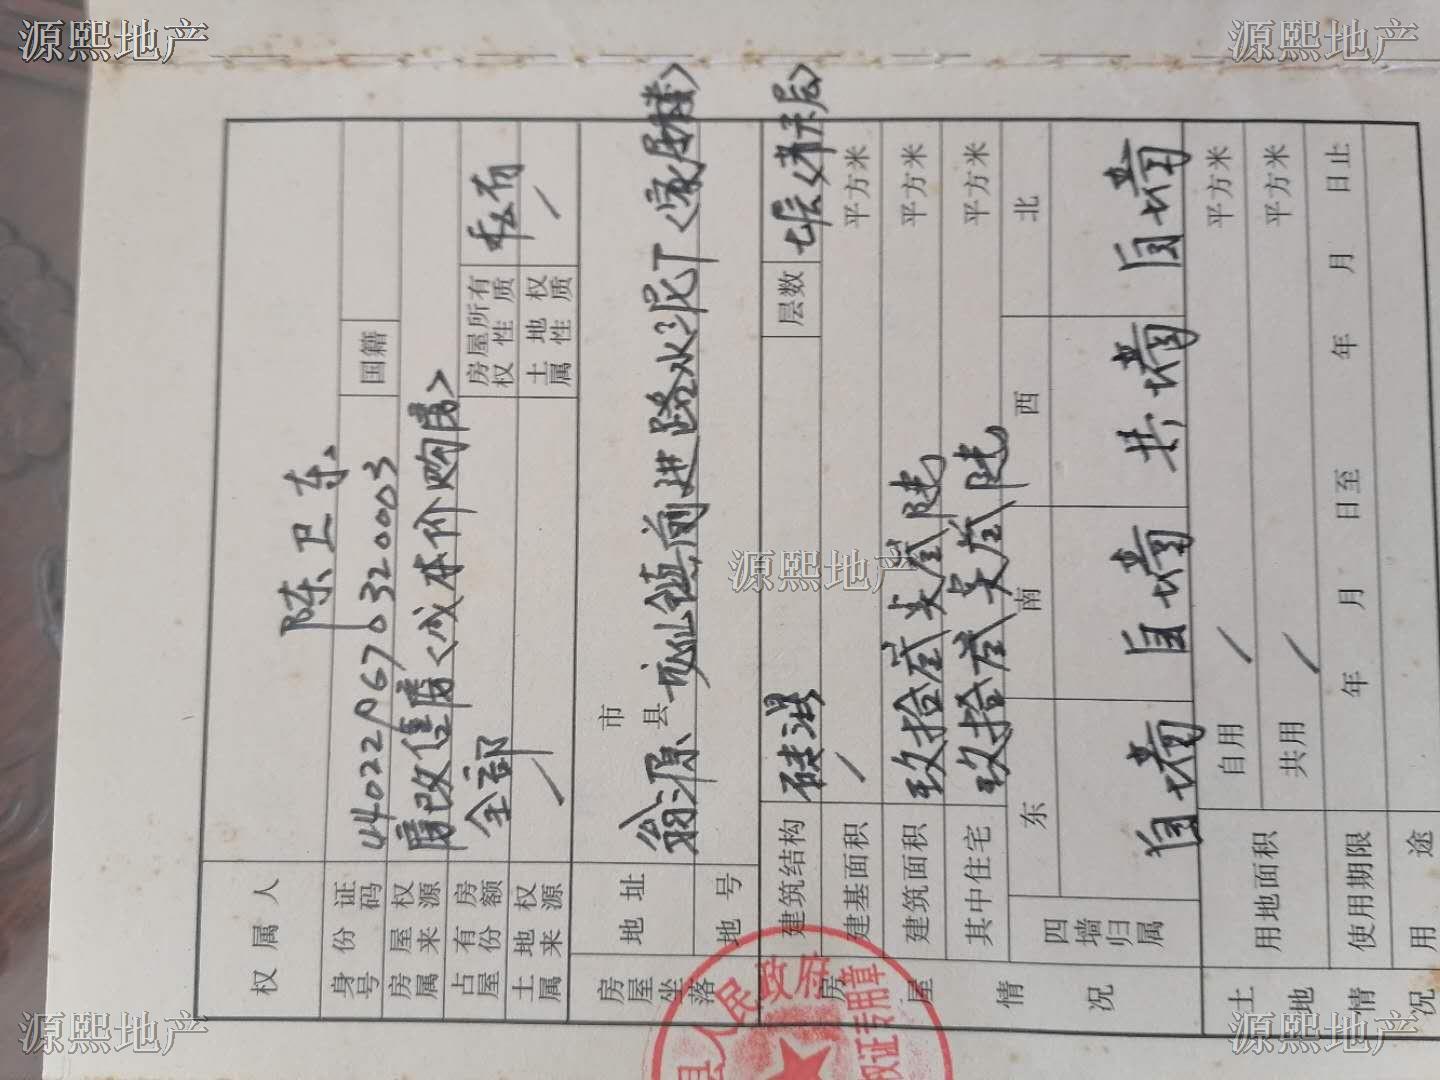 源熙地产
源熙地产
权属人 陈卫东
身份证号码 440221196703200003 国籍
房屋权属来源 房改售房<成本价购房>
占有房屋份额 全部 房屋所有权性质 私有
土地权属来源 / 土地权属性质 /
房屋坐落 地址 翁源 市县 龙仙镇前进路水泥厂<家属楼>
地号
房屋情况 建筑结构 硅混 层数 七层<第六层>
建基面积 / 平方米
建筑面积 玖拾贰点叁陆 平方米
其中住宅 玖拾贰点叁陆 平方米
四墙归属 东 南 西 北
自墙 自墙 共墙 自墙
土地情况 用地面积 自用 / 平方米
共用 / 平方米
使用期限 年 月 日至 年 月 日止
用途
县人民政府
权证专用章
源熙地产
源熙地产
源熙地产